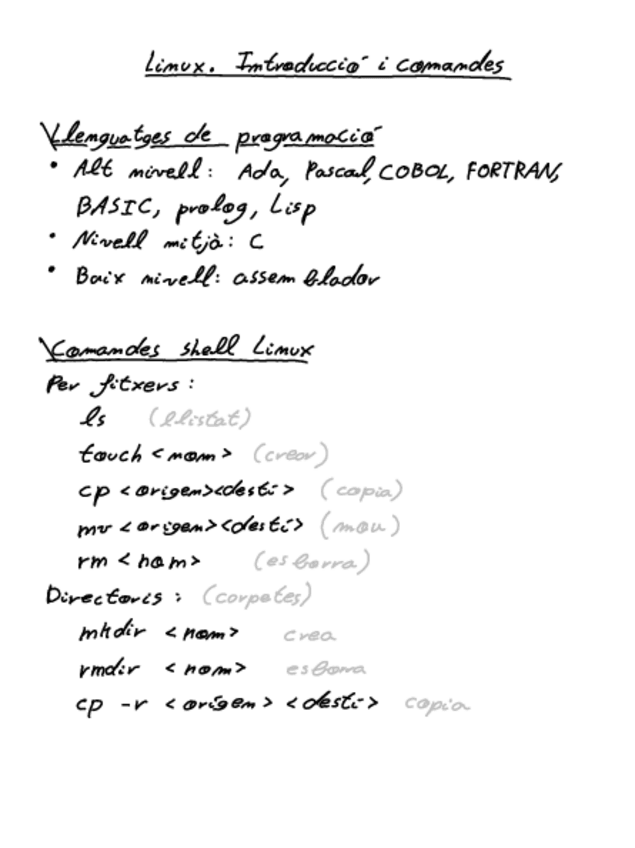 Linux. Introducció i comandes
Llenguatges de programació
• Alt nivell: Ada, Pascal, COBOL, FORTRAN,
BASIC, prolog, Lisp
• Nivell mitjà: C
• Baix nivell: assemblador
Comandes shell Linux
Per fitxers:
ls (llistat)
touch <nom> (crear)
cp <origen><destí> (copia)
mv <origen><destí> (mou)
rm <nom> (esborra)
Directoris: (carpetes)
mkdir <nom> crea
rmdir <nom> esborra
cp -r <origen> <destí> copia